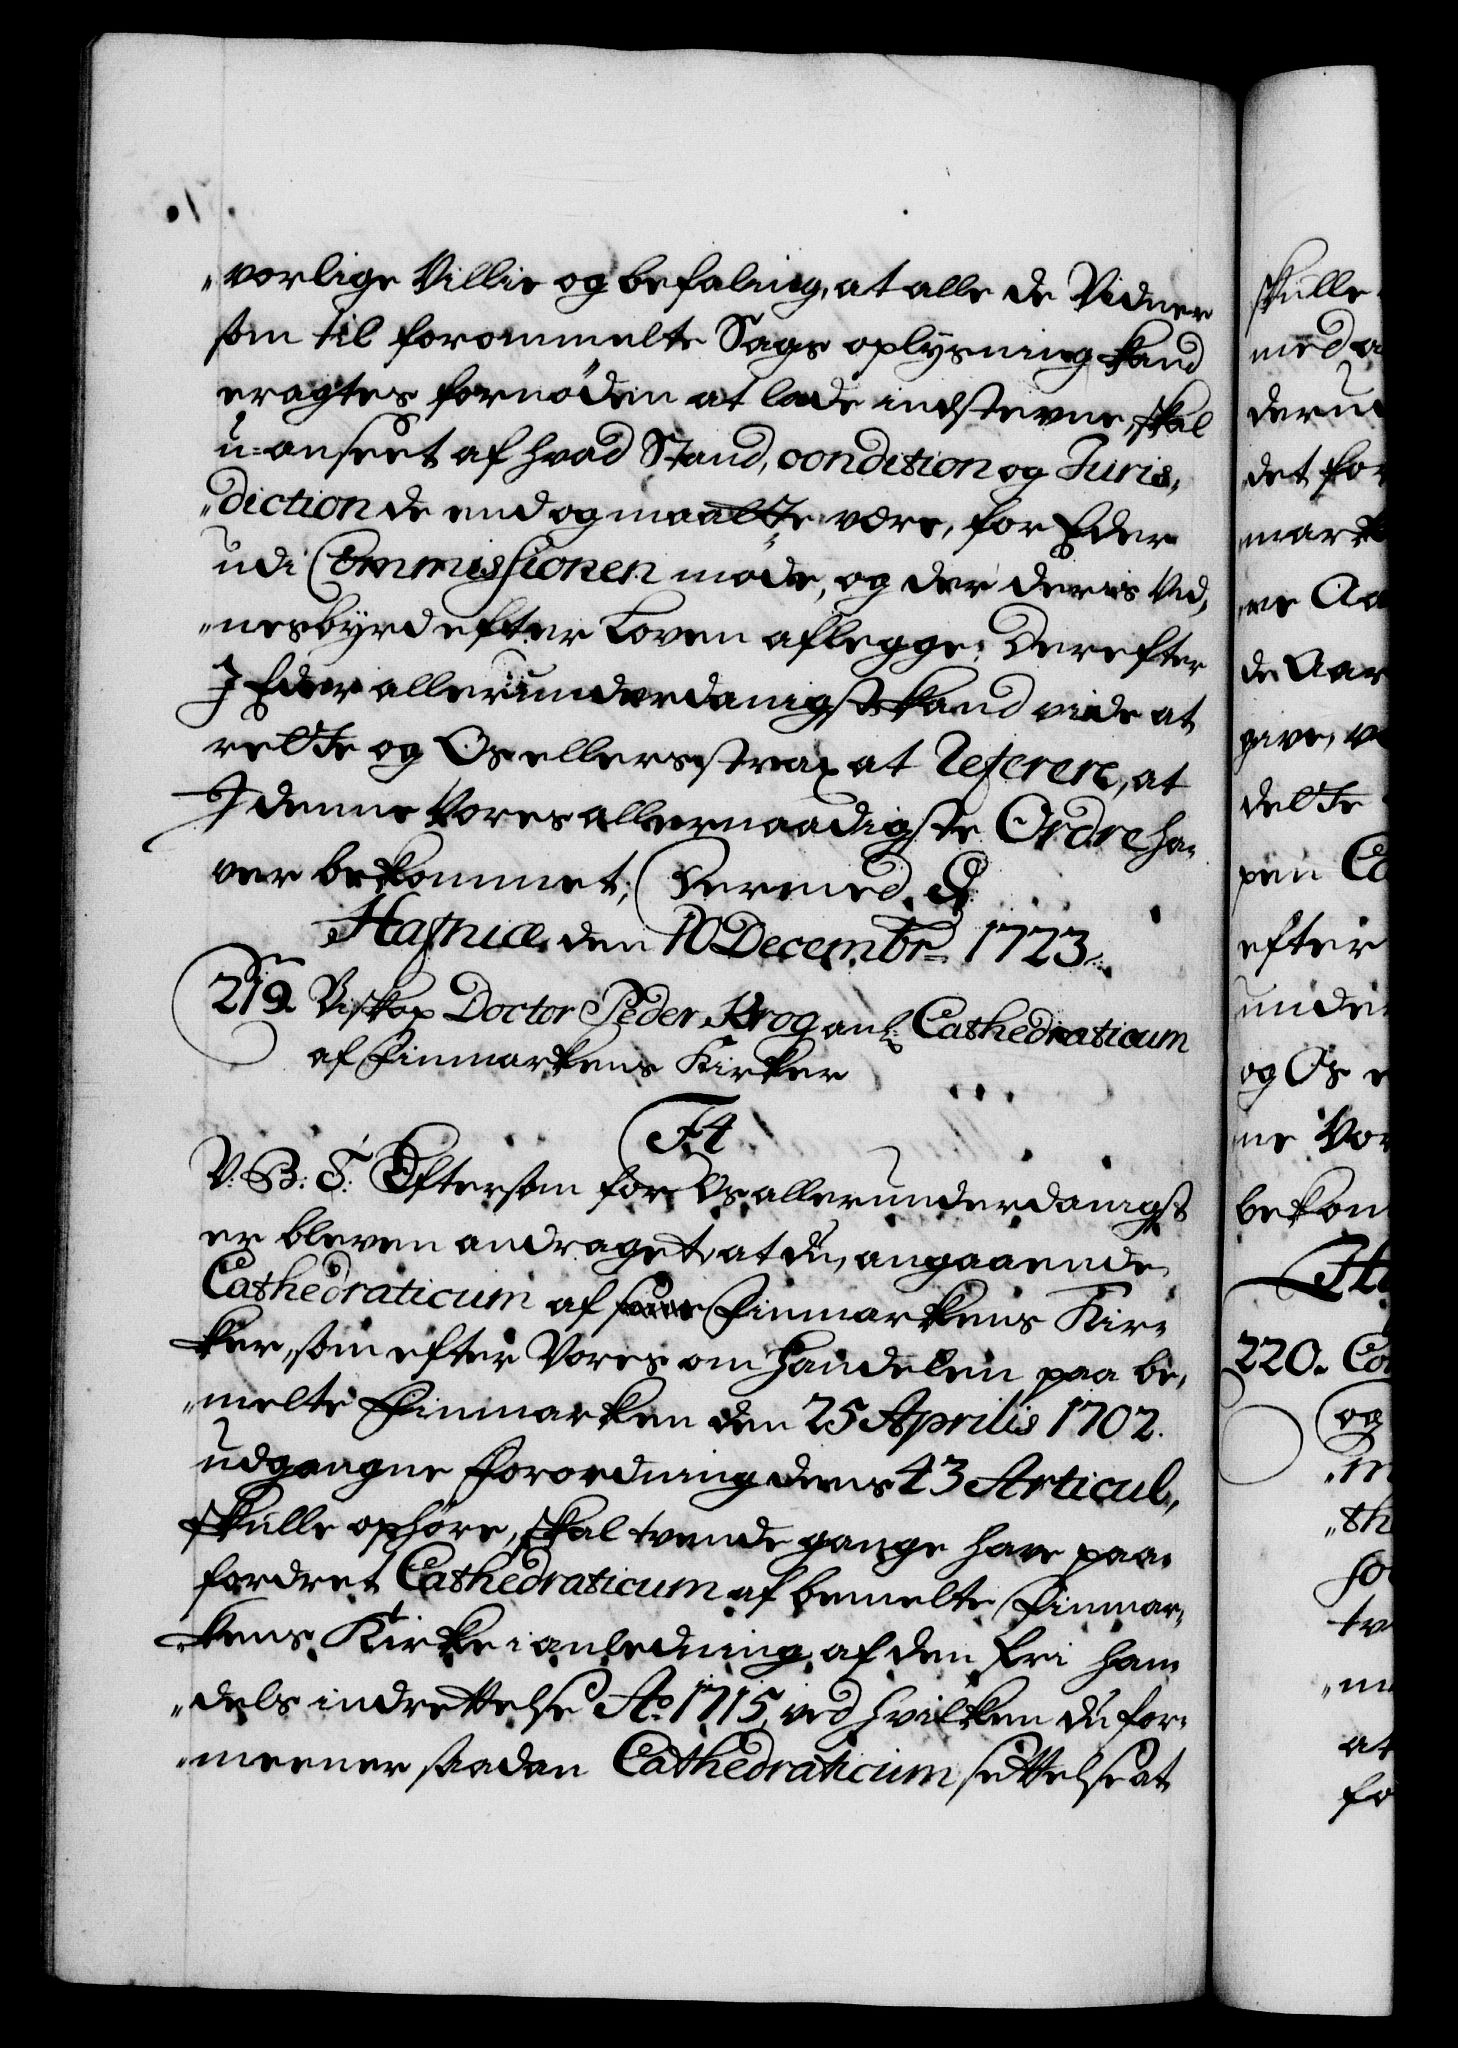 "vorlige Villie og befaling, at alle de Vidner
som til forommelte Sags oplysning kand
eragtes fornöden at lade indstevne, skal
u-anseet af hvad Stand, condition og Juris,
"diction de end og maatte være, for Eder
udi Commissionen møde, og der deris Vid,
"nesbyrd efter Loven aflegge; Derefter
I Eder allerunderdanigst kand vide at
rette og Os ellers strax at Referere, at
I denne Vores allernaadigste Ordre ha-
ver bekommet; Dermed
Hafniæ, den 10 Decembr= 1723
219. Biskop Doctor Peder Krog anl: Cathedraticum
af Finmarkens Kirker
F4
V: B: T: Eftersom for Os allerunderdanigst
er bleven andraget, at du, angaaende
Cathedraticum af Finmarkens Kir-
ker, som efter Vores om Handelen paa be,
"melte Finmarken den 25 Aprilis 1702.
udgangne Forordnings dens 43 Articul,
skulle ophøre, skal tvende gange have paa-
fordret Cathedraticum af bemelte Finmar,
"kens Kirke i anledning af den fri Han
"dels indrettelse Ao 1715, ved hvilken du for-
"meener saadan Cathedraticum settelse at
skulle
med
det for
efter
og Os
ne Vor
bekom
220. Co
og
at